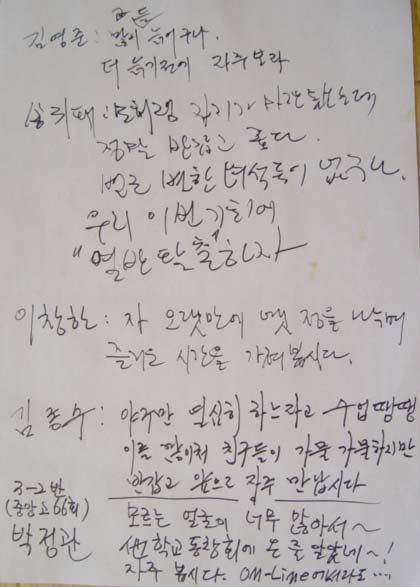 모두
김영준: 많이 늙어구나.
더 늙기전에 자주보라
정말 반갑고 좋다.
별로 변한 녀석들이 없구나.
우리 이번기회에
"열반탈출"하자
이창한: 자 오랫만에 옛 정을 나누며
즐거운 시간을 가져봅시다.
김종수: 야구만 열심히 하느라고 수업땡땡
이를 많이쳐 친구들이 가물가물하지만
반갑고 앞으로 자주 만납시다
3-2반
(중앙고 66회)
박정관
모르는 얼굴이 너무 많아서~
학교동창회에 온줄 알았네~!
자주 봅시다. ON-Line에서라도...!